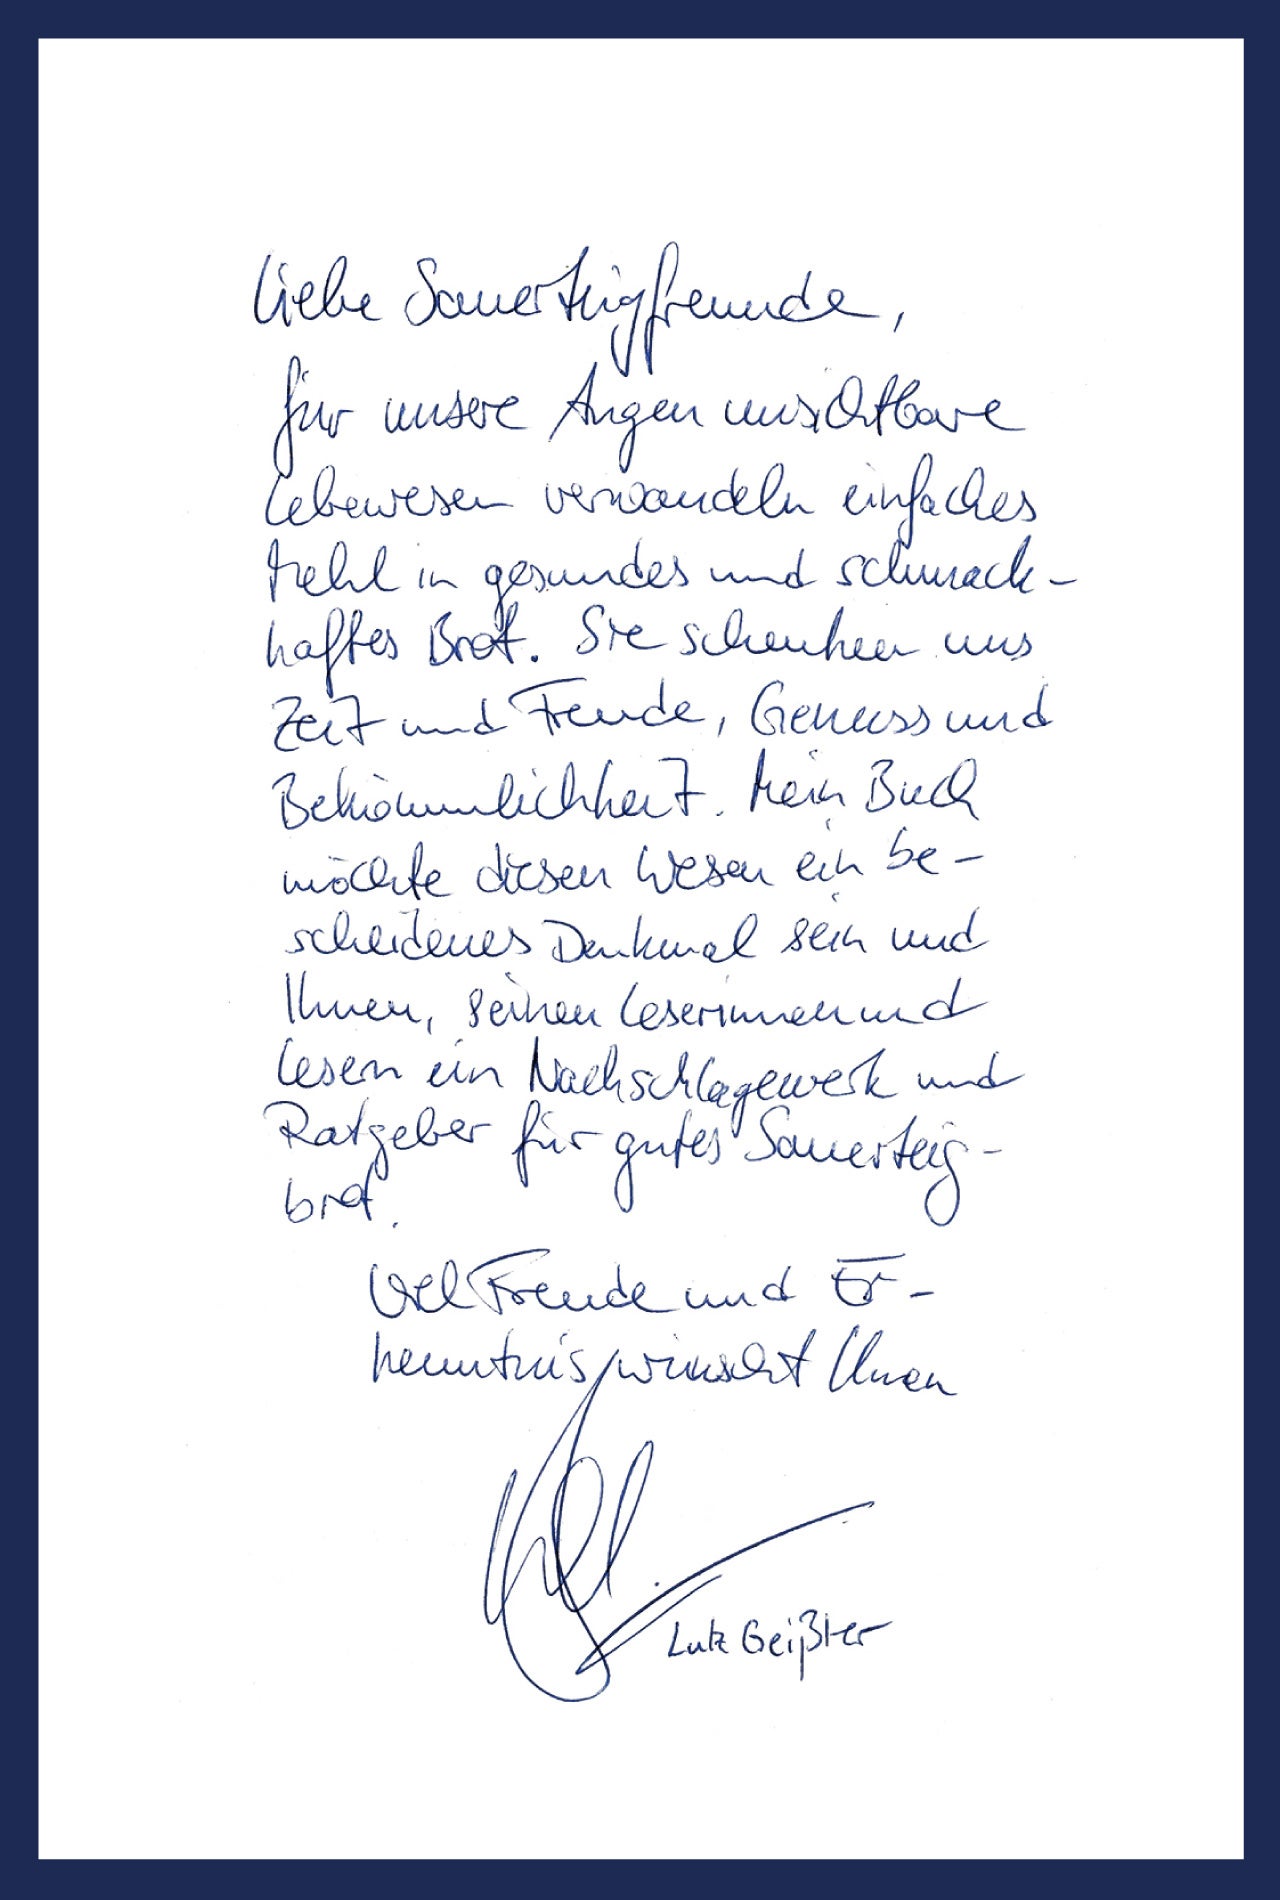 Liebe Sauerteigfreunde,
für unsere Augen unsichtbare
Lebewesen verwandeln einfaches
Mehl in gesundes und schmack-
haftes Brot. Sie schenken uns
Zeit und Freude, Genuss und
Bekömmlichkeit. Mein Buch
möchte diesen Wesen ein be-
scheidenes Denkmal sein und
Ihnen, seinen Leserinnen und
Lesern ein Nachschlagewerk und
Ratgeber für gutes Sauerteig-
brot.
Viel Freude und Er-
kenntnis wünscht Ihnen
Lutz Geißler